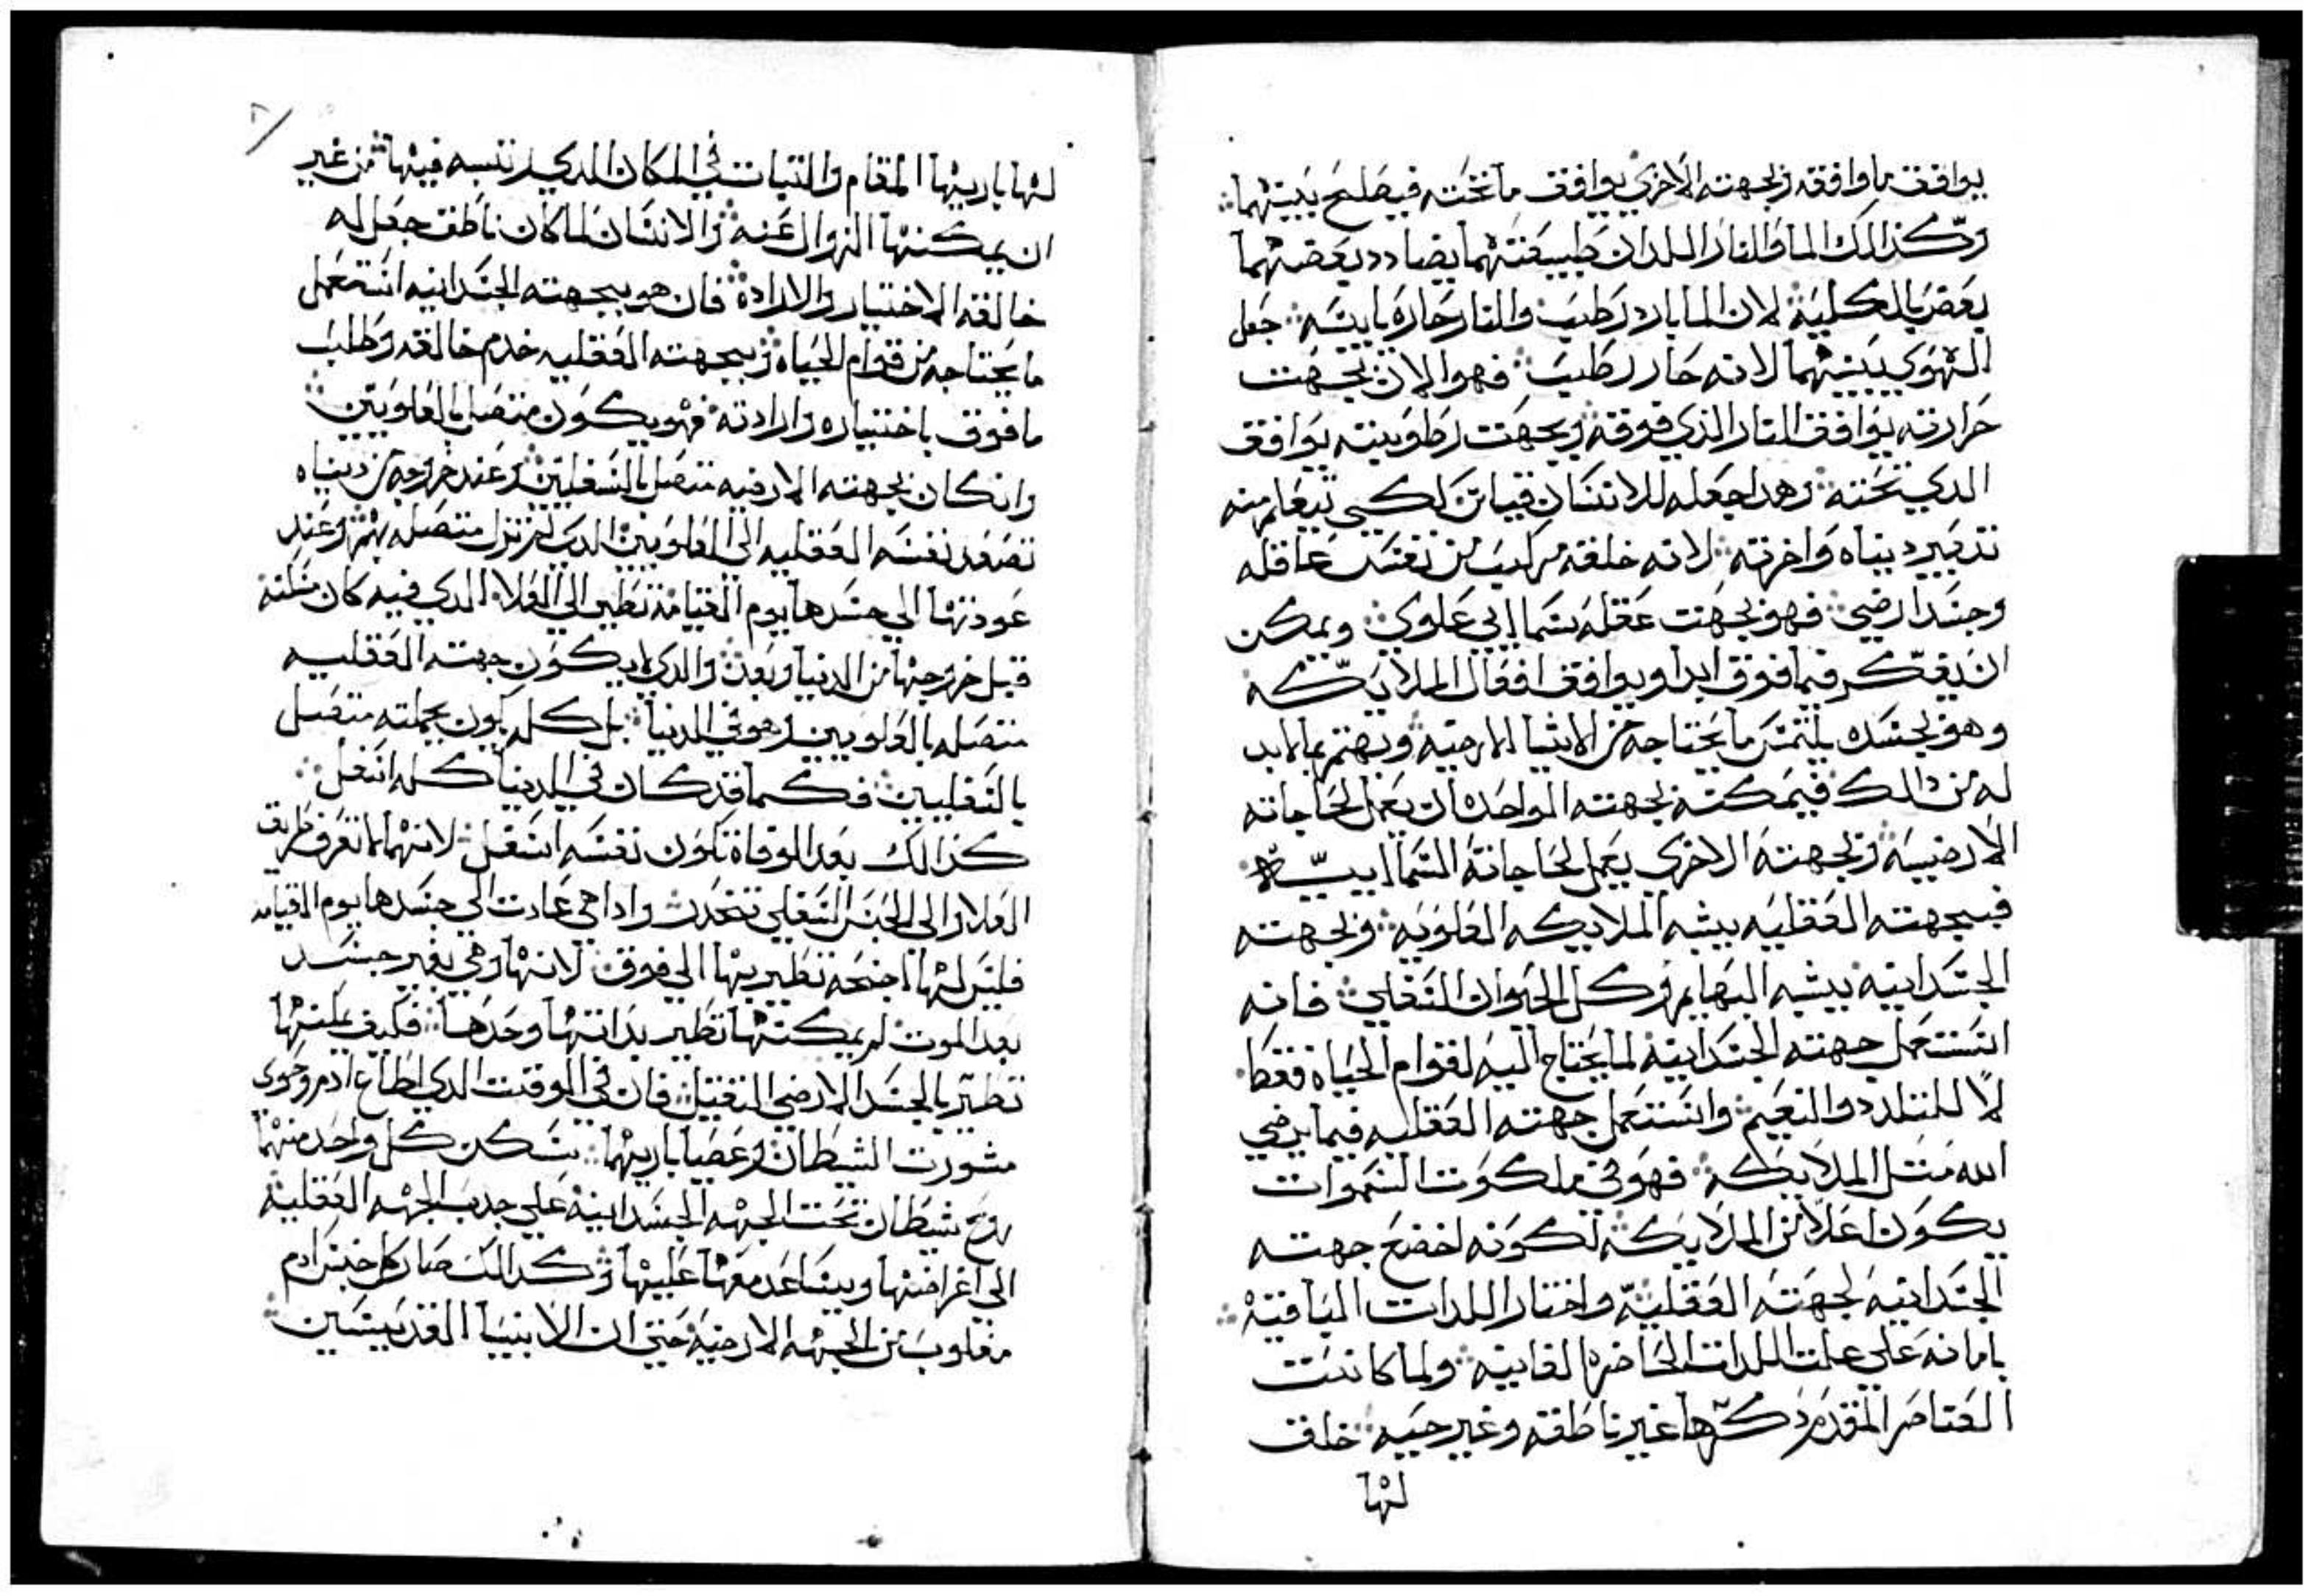 يوافقه ما وافقه وبجهته الاخري يوافق ما تحته فيصلح بينهما
وكذالك الما والنار اللدان طبيعتهما يضادد بعضهما
بعض بالكليه لان الما بارد رطب والنار حاره يابسه جعل
الهوي بينهما لانه حار رطب فهوا الان بجهت
حرارته يوافق النار الذي فوقه وبجهت رطوبته يوافق
الدي تحته وهدا جعله للانسان قياس لكي يتعلم منه
تدبير دنياه واخرته لانه خلقه مركب من نفس عاقله
وجسد ارضي فهو بجهت عقله سماايي علوي ويمكن
ان يفكر فيما فوق ابدا ويوافق افعال الملايكه
وهو بجسده يلتمس ما يحتاجه من الاشيا الارضيه ويهتم بما لابد
له من دالك فيمكنه بجهته الواحده ان يعمل لحاجاته
الارضيه وبجهته الاخري يعمل لحاجاته السماييه
فبجهته العقليه يشبه الملايكه العلويه وبجهته
الجسدانيه يشبه البهايم وكل الحيوان السفلي فانه
استعمل جهته الجسدانيه لما يحتاج اليه لقوام الحياه فقط
لا للتلدد والنعيم واستعمل جهته العقليه فيما يرضي
الله متل الملايكه فهو في ملكوت السموات
يكون اعلا من الملايكه لكونه اخضع جهته
الجسدانيه لجهته العقليه واختار اللدات الباقيه
بامانه علي اللدات الحاضره الفانيه ولما كانت
العناصر المقدم ذكرها غير ناطقه وغير حيه خلق
لها
لها باريها المقام والتبات في المكان الدي رتبه فيها من غير
ان يمكنها الزوال عنه والانسان لما كان ناطق جعل له
خالقه الاختيار والاراده فان هو بجهته الجسدانيه استعمل
ما يحتاجه من قوام الحياه وبجهته العقليه خدم خالقه وطلب
مافوق باختياره وارادته فهو يكون متصل بالعلويين
وانكان بجهته الارضيه متصل بالسفليين وعند خروجه من دنياه
تصعد نفسه العقليه الي العلويين الدي لم تزل متصله بهم وعند
عودتها الي جسدها يوم القيامه تطير الي العلا الدي فيه كان
قبل خروجها من الدنيا وبعد والدي لا يكون جهته العقليه
متصله بالعلويين وهو في الدنيا بل كله يكون بجملته متصل
بالسفليين فكما قد كان في الدنيا كله اسفل
كذالك بعد الوفاه تكون نفسه اسفل لانها ما تعرف طريق
العلا والي الجنس السفلي تنحدر وادا هي عادت الي جسدها يوم القيامه
فليس لها اجنحه تطير بها الي فوق لانها وهي بغير جسد
بعد الموت لم يمكنها تطير بداتها وحدها فكيف يمكنها
تطير بالجسد الارضي التقيل فان في الوقت الدي اطاع ادم وحوي
مشورت الشيطان وعصيا باريهما سكن كل واحد منهما
روح شيطان تحت الجهه الجسدانيه علي جدب الجهه العقليه
الي اغراضها ويساعد معها عليها وكدالك صار كل جنس ادم
مغلوب من الجهه الارضيه حتي ان الانبيا القديسين